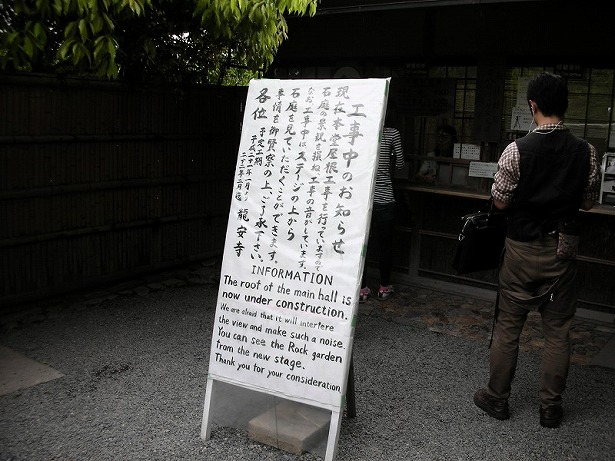 工事中のお知らせ
現在本堂屋根工事を行っていますので
石庭の景観を損ね、工事の音がしています。
なお、工事中は、ステージの上から
石庭を見ていただくことができます。
事情を御賢察の上、ご了承下さい。
予定工期
平成二十一年一月より
二十三年二月迄
各位
龍安寺
INFORMATION
The roof of the main hall is
now under construction.
We are afraid that it will interfere
the view and make such a noise.
You can see the Rock garden
from the new stage.
Thank you for your consideration